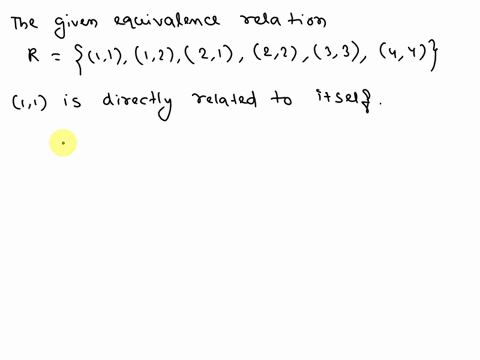 The given equivalence relation
R = {(1,1), (1,2), (2,1), (2,2), (3,3), (4,4)}
(1,1) is directly related to itself.